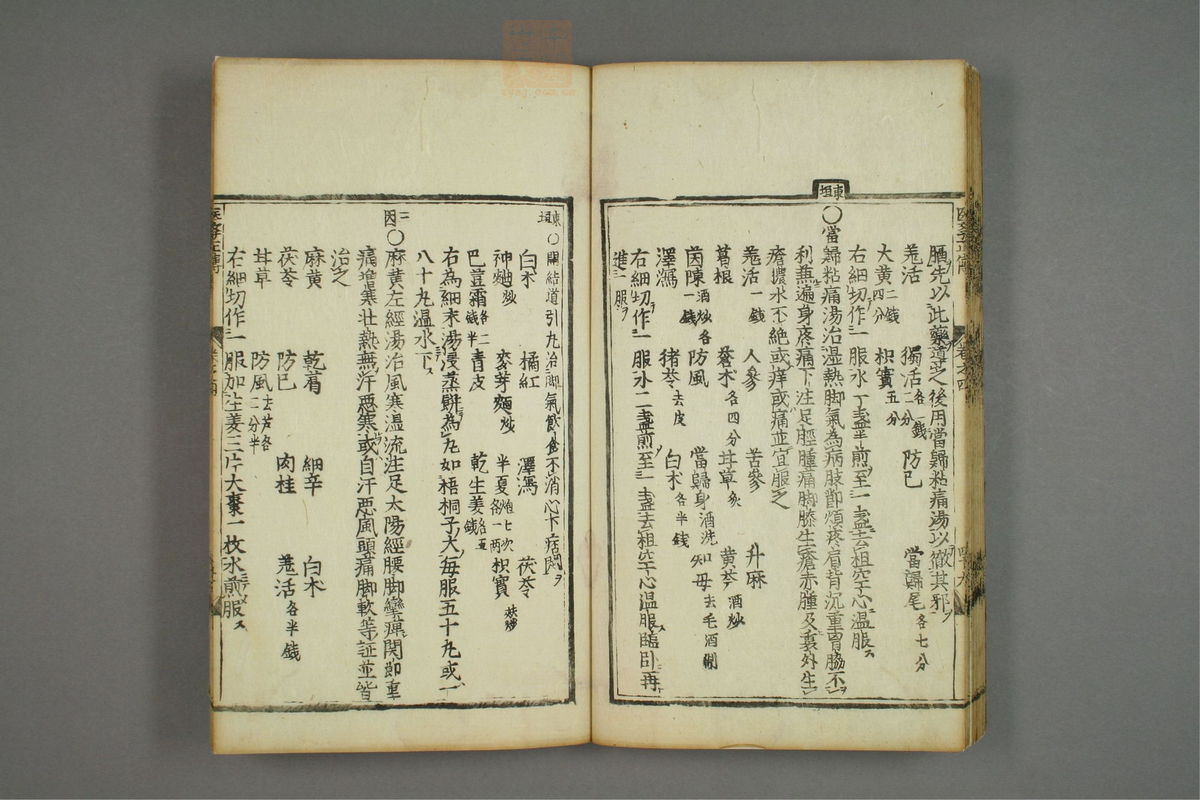 腸先以此藥導之後用當歸粘痛湯以徹其邪
羌活 獨活各一錢二分 防已 當歸尾各七分
大黃二錢四分 枳實五分
右細切作一服水一盞半煎至一盞去柤空心溫服
東垣
○當歸粘痛湯治濕熱脚氣為病肢節煩疼肩背沉重胷脇不
利兼遍身疼痛下注足脛腫痛脚膝生瘡赤腫及裏外生
瘡膿水不絕或痒或痛並宜服之
羌活一錢 人參 苦參 升麻
葛根 蒼术各四分 甘草炙 黃芩酒炒
茵陳酒炒各一錢 防風 當歸身酒洗 知母去毛酒
澤瀉 猪苓去皮 白术各半錢
右細切作一服水二盞煎至一盞去柤空心溫服臨卧再
進一服
東垣
○開結道引丸治脚氣飲食不消心下痞悶
白术 橘紅 澤瀉 茯苓
神麯炒 麥芽麵炒 半夏炮七次各一兩 枳實麸炒
巴荳霜各二錢半 青皮 乾生姜各五錢
右為細末湯浸蒸餅為丸如梧桐子大每服五十丸或
八十丸溫水下
三因
○麻黃左經湯治風寒濕流注足太陽經腰脚攣痹関節重
痛增寒壯熱無汗惡寒或自汗惡風頭痛脚軟等証並皆
治之
麻黃 乾葛 細辛 白术
茯苓 防已 肉桂 羌活各半錢
甘草 防風去芦各二分半
右細切作一服加生姜三片大棗一枚水煎服